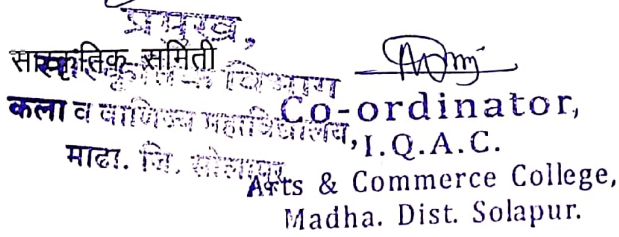 प्रमुख,
सांस्कृतिक समिती
सांस्कृतिक विभाग
कला व वाणिज्य महाविद्यालय,
माढा. जि. सोलापूर
Co-ordinator,
I.Q.A.C.
Arts & Commerce College,
Madha. Dist. Solapur.